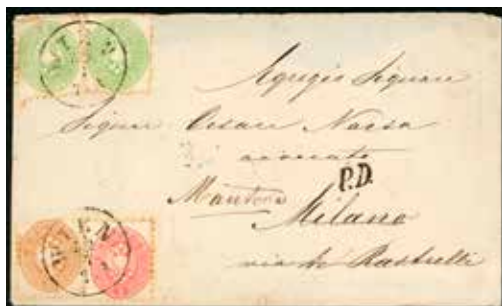 WIEN
Egregio Signore
Signor Cesare Norsa
avvocato
P.D.
Mantova
Milano
via de Rastrelli
WIEN